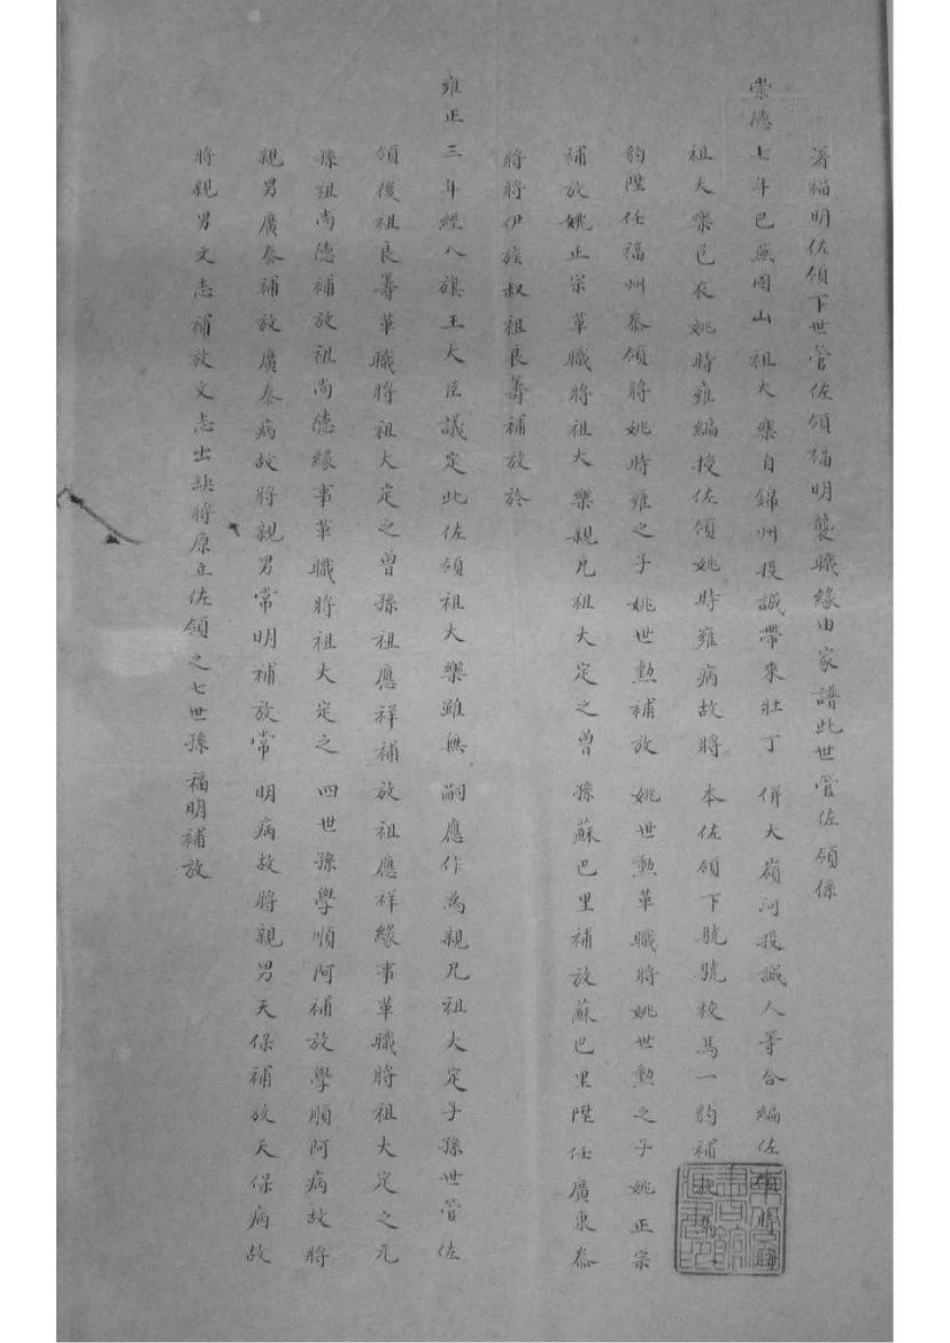 署福明佐領下世管佐領福明襲職緣由家譜此世管佐領係
崇德七年已無因山祖大樂自錦州投誠帶來壯丁併大嶺河投誠人等合編佐
祖大樂包衣姚時雍編授佐領姚時雍病故將本佐領下驍騎校馬一豹補
豹陞任福州叅領將姚時雍之子姚世勲補放姚世勲革職將姚世勲之子姚正宗
補放姚正宗革職將祖大樂親兄祖大定之曾孫蘇巴里補放蘇巴里陞任廣東叅
將將伊族叔祖良壽補放於
雍正三年經八旗王大臣議定此佐領祖大樂雖無嗣應作為親兄祖大定子孫世管佐
領後祖良壽革職將祖大定之曾孫祖應祥補放祖應祥緣事革職將祖大定之元
孫祖尚德補放祖尚德緣事革職將祖大定之四世孫學順阿補放學順阿病故將
親男廣泰補放廣泰病故將親男常明補放常明病故將親男天保補放天保病故
將親男文志補放文志出缺將原立佐領之七世孫福明補放